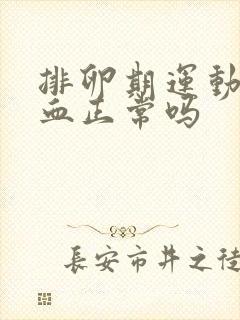 排卵期運動
血正常吗
長安市井之徒